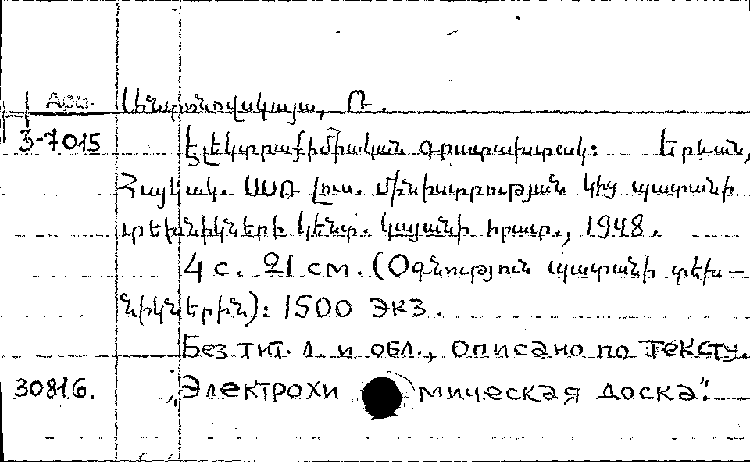 Арм. Անտոնովսկայա, Ռ.
3-7015 Էլեկտրաքիմիական օրատախտակ: Երևան,
Հայկակ. ՍՍՌ լուս. մինիստրության կից պատանի
տեխնիկների կենտ. կայանի հրատ., 1948.
4 с. 21 см. (Օգնություն պատանի տեխ-
նիկներին): 1500 экз.
Без тит. л. и обл., описано по тексту.
30816. "Электрохимическая доска".